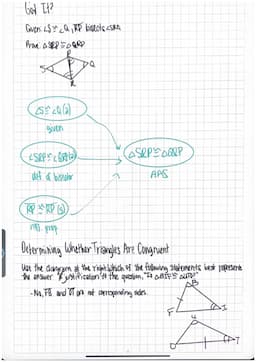 Got It?
Given: ∠S ≅ ∠Q, RP bisects ∠SRQ
Prove: △SRP ≅ △QRP
P
S
Q
R
∠S ≅ ∠Q (A)
given
∠SRP ≅ ∠QRP (A)
def of bisector
△SRP ≅ △QRP
AAS
RP ≅ RP (S)
Determining Whether Triangles Are Congruent
Use the diagram at the right. Which of the following statements best represents
the answer justification of the question, "Is
- No, FB and OT are not corresponding sides.
B
F
I
U
O
T